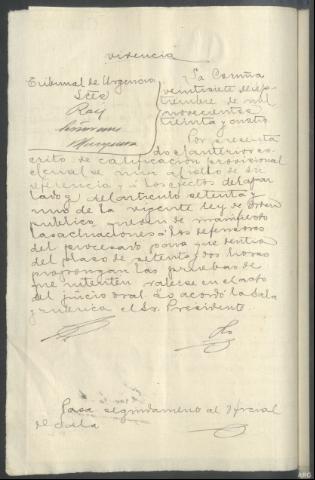 videncia
Tribunal de Urgencia
Sres
Rey
La Coruña
veintisiete de sep-
tiembre de mil
novecientos
treinta y cuatro
Por presenta
do el anterior es
crito de calificación provisional
el cual se una al rollo de su
referencia y a los efectos del apar
tado del artículo setenta y
uno de la vigente ley de Orden
público, de manifiesto
las actuaciones a los defensores
del procesado para que dentro
del plazo de setenta y dos horas
propongan las pruebas de
que intenten valerse en el acto
del juicio oral. Lo acordó la Sala
y rubrica el Sr. Presidente
Pasa seguidamente al Oficial
de Sala